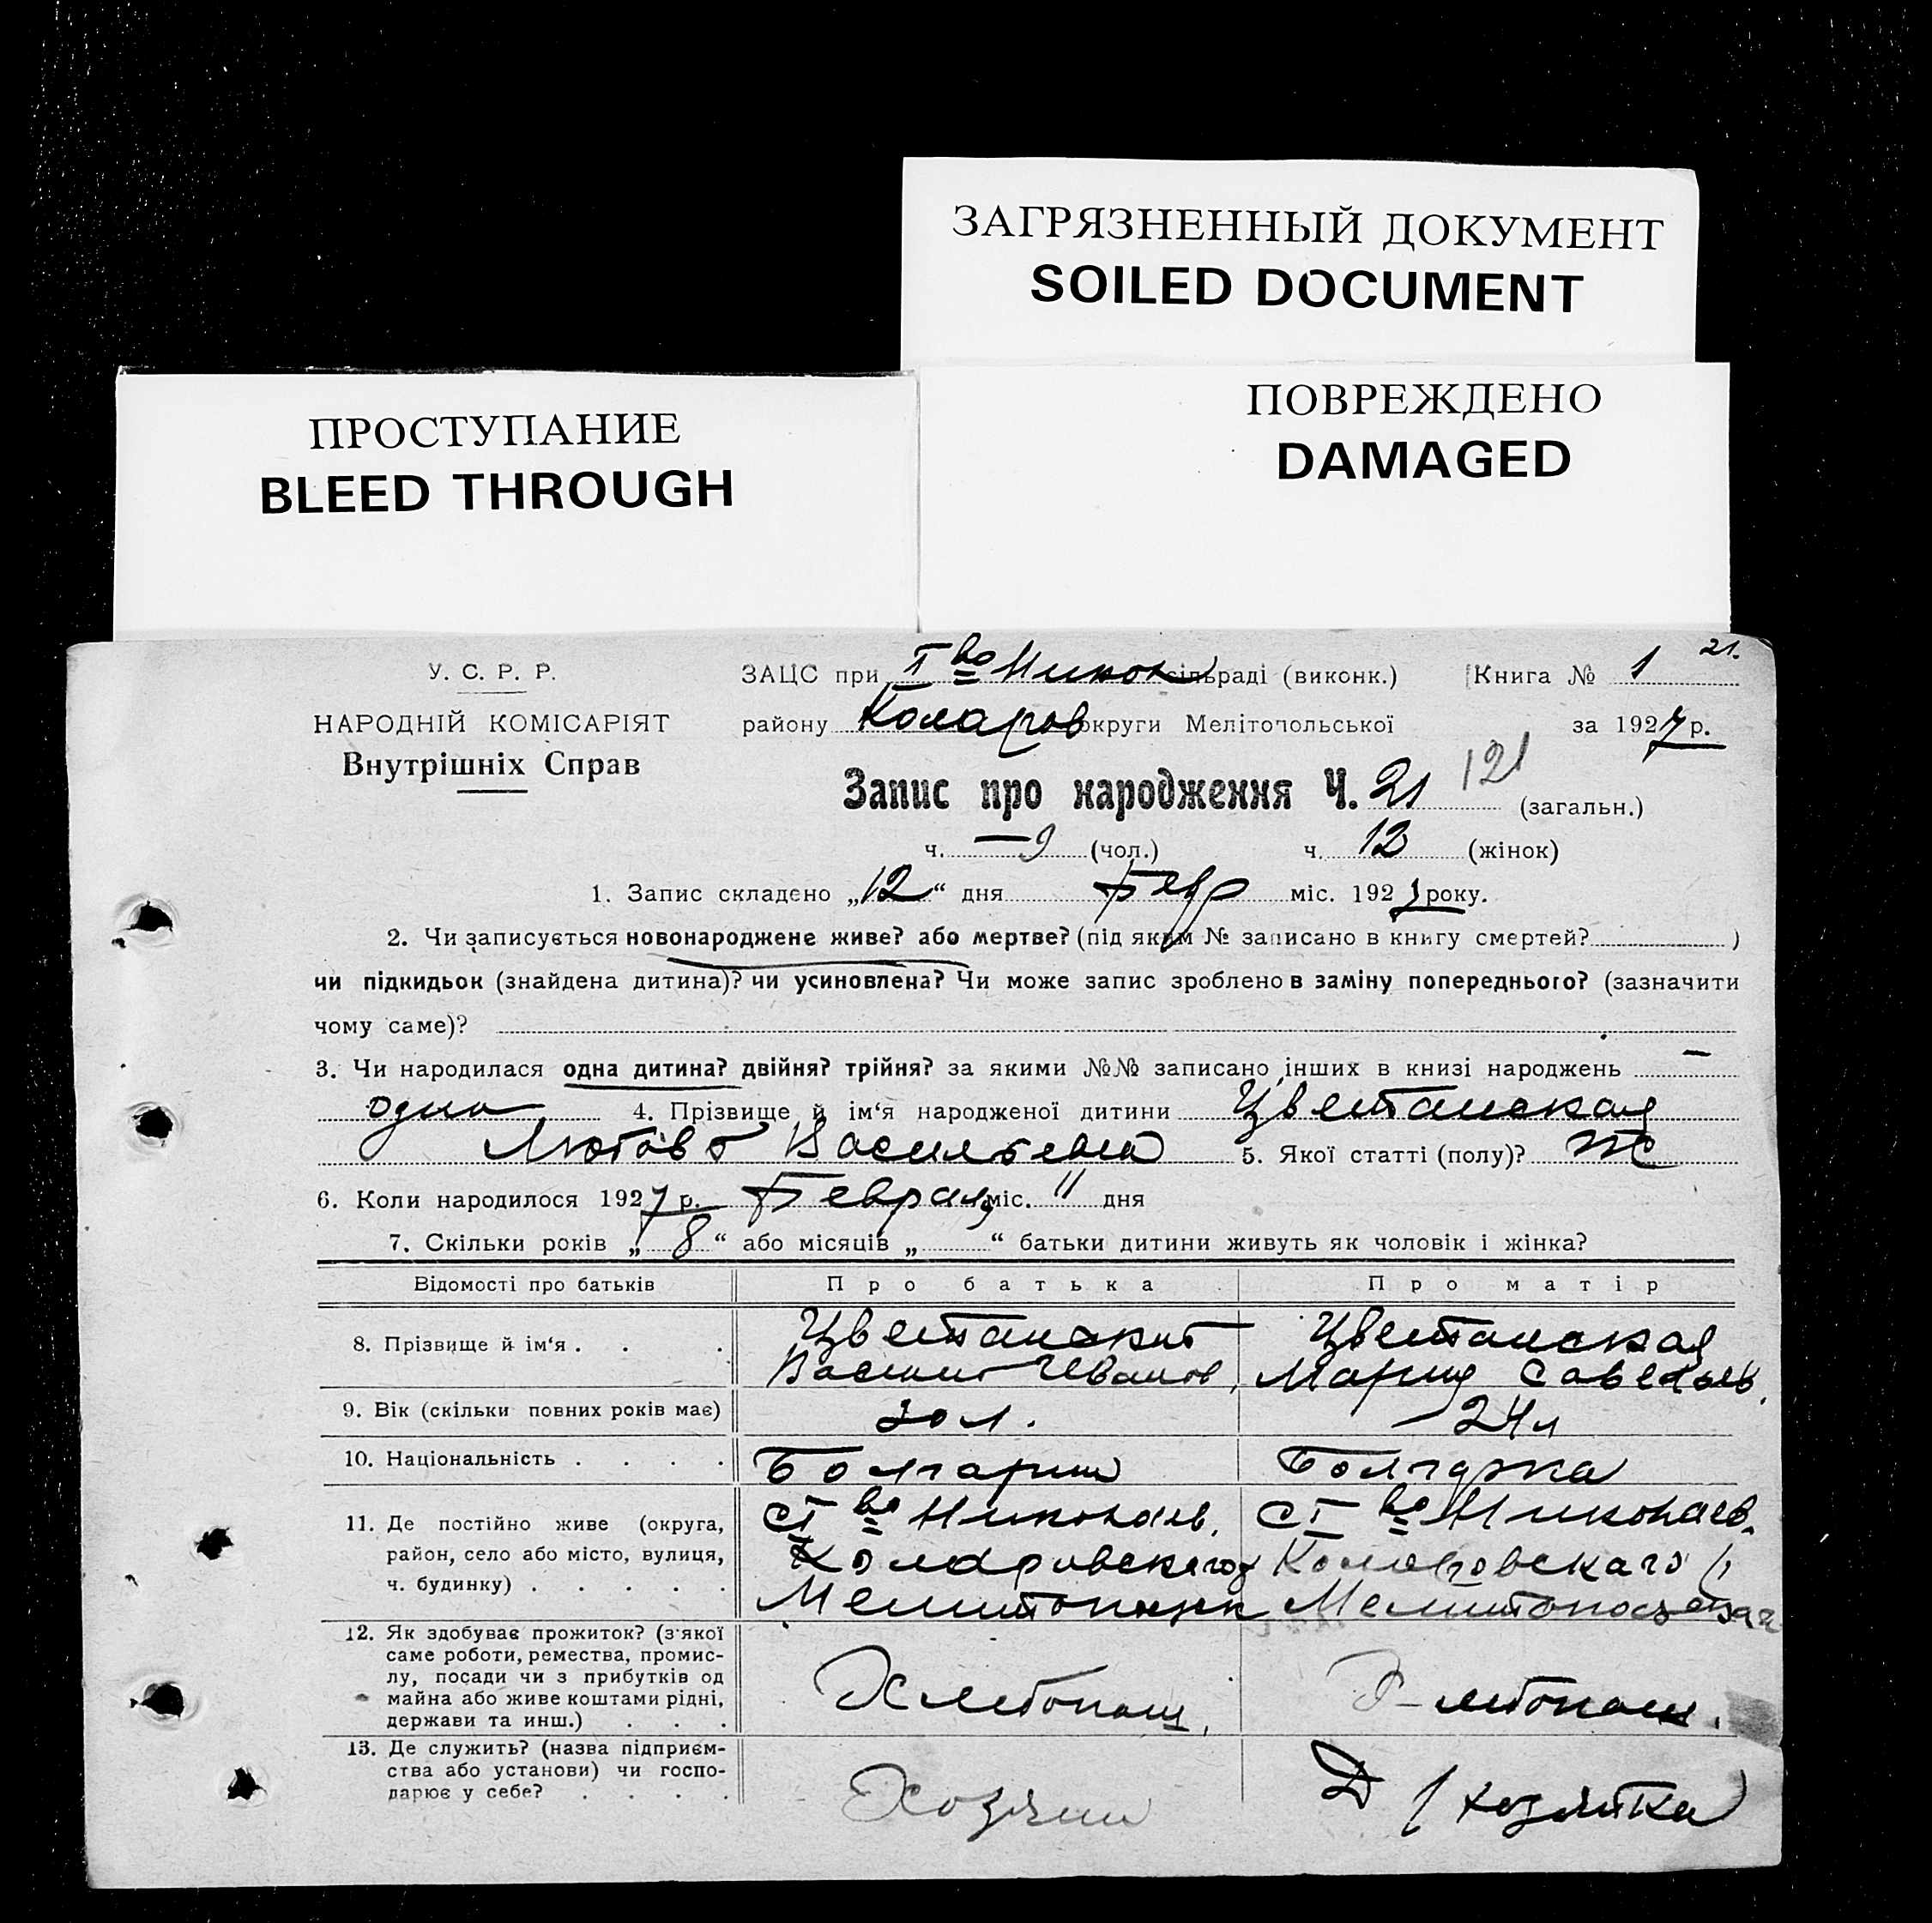 ЗАГРЯЗНЕННЫЙ ДОКУМЕНТ
SOILED DOCUMENT
ПРОСТУПАНИЕ
BLEED THROUGH
ПОВРЕЖДЕНО
DAMAGED
21.
У. С. Р. Р.
НАРОДНІЙ КОМІСАРІЯТ
Внутрішніх Справ
ЗАЦС при I во Никол сільраді (виконк.) Книга № 1
району Коларов округи Мелітопольської за 1927 р.
Запис про народження Ч. 21 121 (загальн.)
ч. — 9 (чол.) ч. 12 (жінок)
1. Запис складено „12“ дня Февр міс. 1927 року.
2. Чи записується новонароджене живе? або мертве? (під яким № записано в книгу смертей? )
чи підкидьок (знайдена дитина)? чи усиновлена? Чи може запис зроблено в заміну попереднього? (зазначити
чому саме)?
3. Чи народилася одна дитина? двійня? трійня? за якими №№ записано інших в книзі народжень —
одна 4. Прізвище й ім‘я народженої дитини Цветанская
Любовь Васильевна 5. Якої статті (полу)? Ж
6. Коли народилося 1927 р. Февраля міс. 11 дня
7. Скільки років „8“ або місяців „ “ батьки дитини живуть як чоловік і жінка?
Відомості про батьків Про батька Про матір
8. Прізвище й ім‘я . . . Цветанский Цветанская
Василий Иванов, Мария Савельев.
9. Вік (скільки повних років має) 30 л. 24 л
10. Національність . . . . Болгарин Болгарка
11. Де постійно живе (округа, с I во Николаев. с I во Николаев.
район, село або місто, вулиця, Коларовского Коларовского р
ч. будинку) . . . . .
12. Як здобуває прожиток? (з'якої
саме роботи, ремества, промис-
лу, посади чи з прибутків од Хлебопаш. Хлебопаш.
майна або живе коштами рідні,
держави та инш.) . . .
13. Де служить? (назва підприєм-
ства або установи) чи госпо-
дарює у себе? . . . . Хозяин Д / хозяйка